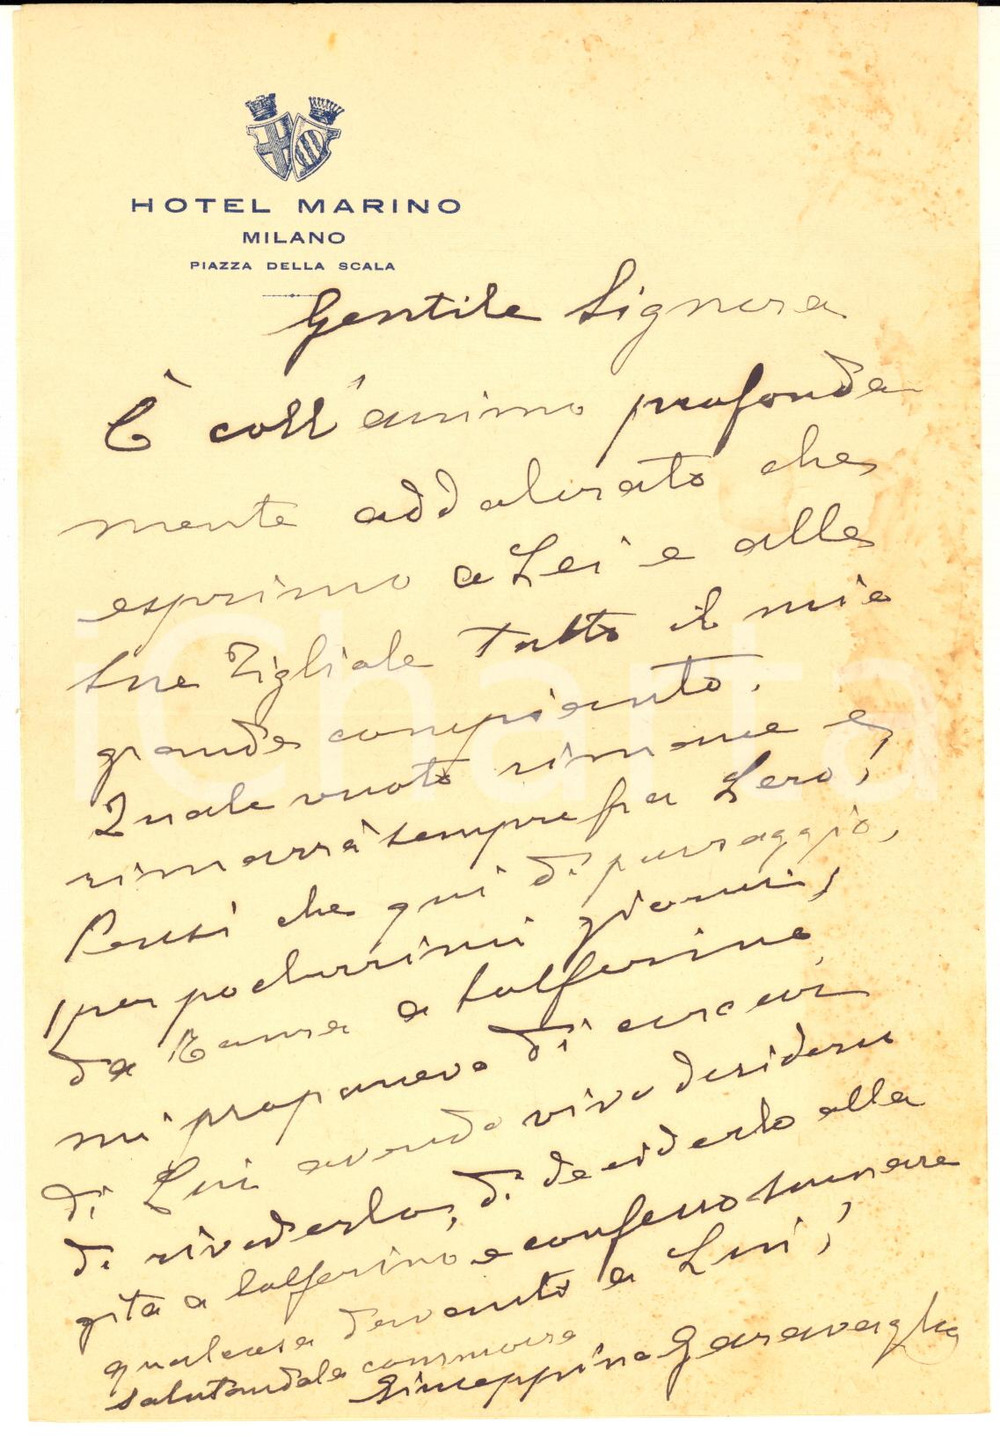 HOTEL MARINO
MILANO
PIAZZA DELLA SCALA
Gentile Signora
È coll'animo profonda
mente addolorato che
esprimo a Lei e alle
sue figliole tutto il mio
grande compianto.
Quale vuoto rimane e
rimarrà sempre fra Loro;
Pensi che qui di passaggio,
per pochissimi giorni,
da Roma a Solferino,
mi proponevo di cercar
di Lui avendo vivo desiderio
di rivederlo, di deciderlo alla
gita a Solferino e confesso suonare
qualcosa davanti a Lui;
salutandola commossa
Giuseppina Garavaglia
iCharta